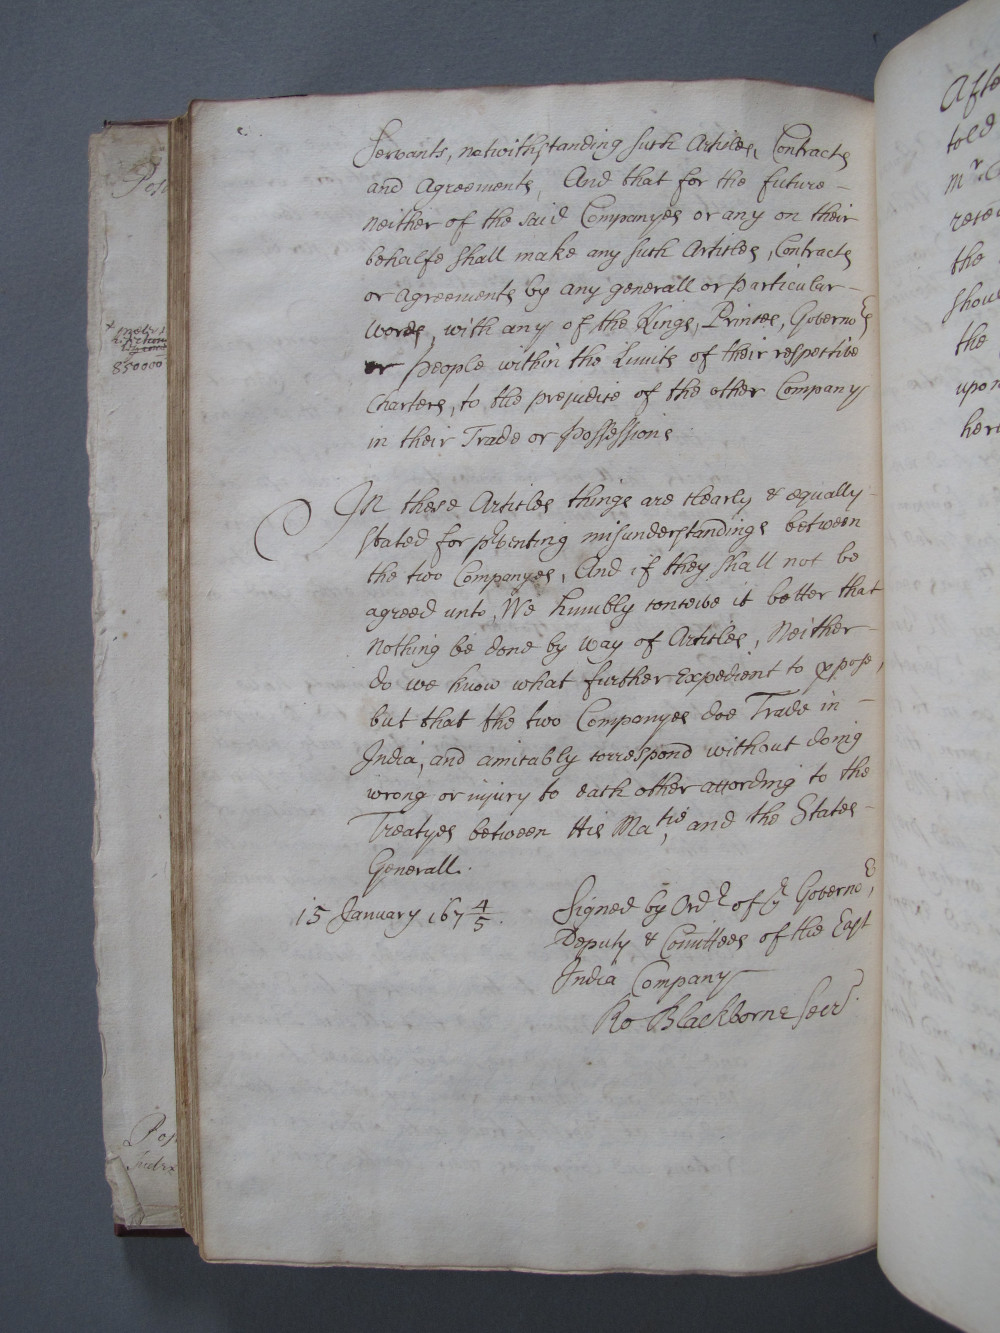 Servants, notwithstanding such Articles, Contracts
and Agreements, And that for the future -
neither of the said Companyes or any on their
behalfe shall make any such Articles, Contracts
or Agreements by any generall or particular -
words, with any of the Kings, Princes, Governo.rs
or people within the Limits of their respective
Charters, to the prejudice of the other Company
in their Trade or Possessions
In these Articles things are clearly & equally -
stated for p'venting misunderstandings between
the two Companyes, And if they shall not be
agreed unto, We humbly conceive it better that
nothing be done by way of Articles, Neither -
do we know what further Expedient to ꝓpose,
but that the two Companyes doe Trade in -
India, and amicably correspond without doing
wrong or injury to each other according to the
Treatyes between His Ma.tie, and the States -
Generall.
15 January 167 4/5.
Signed by Ord.r of y.e Governo.r,
Deputy & Comittees of the East
India Company
Ro Blackborne Secr.
850000
Afte
told
m.r C
the
shou
the
upon